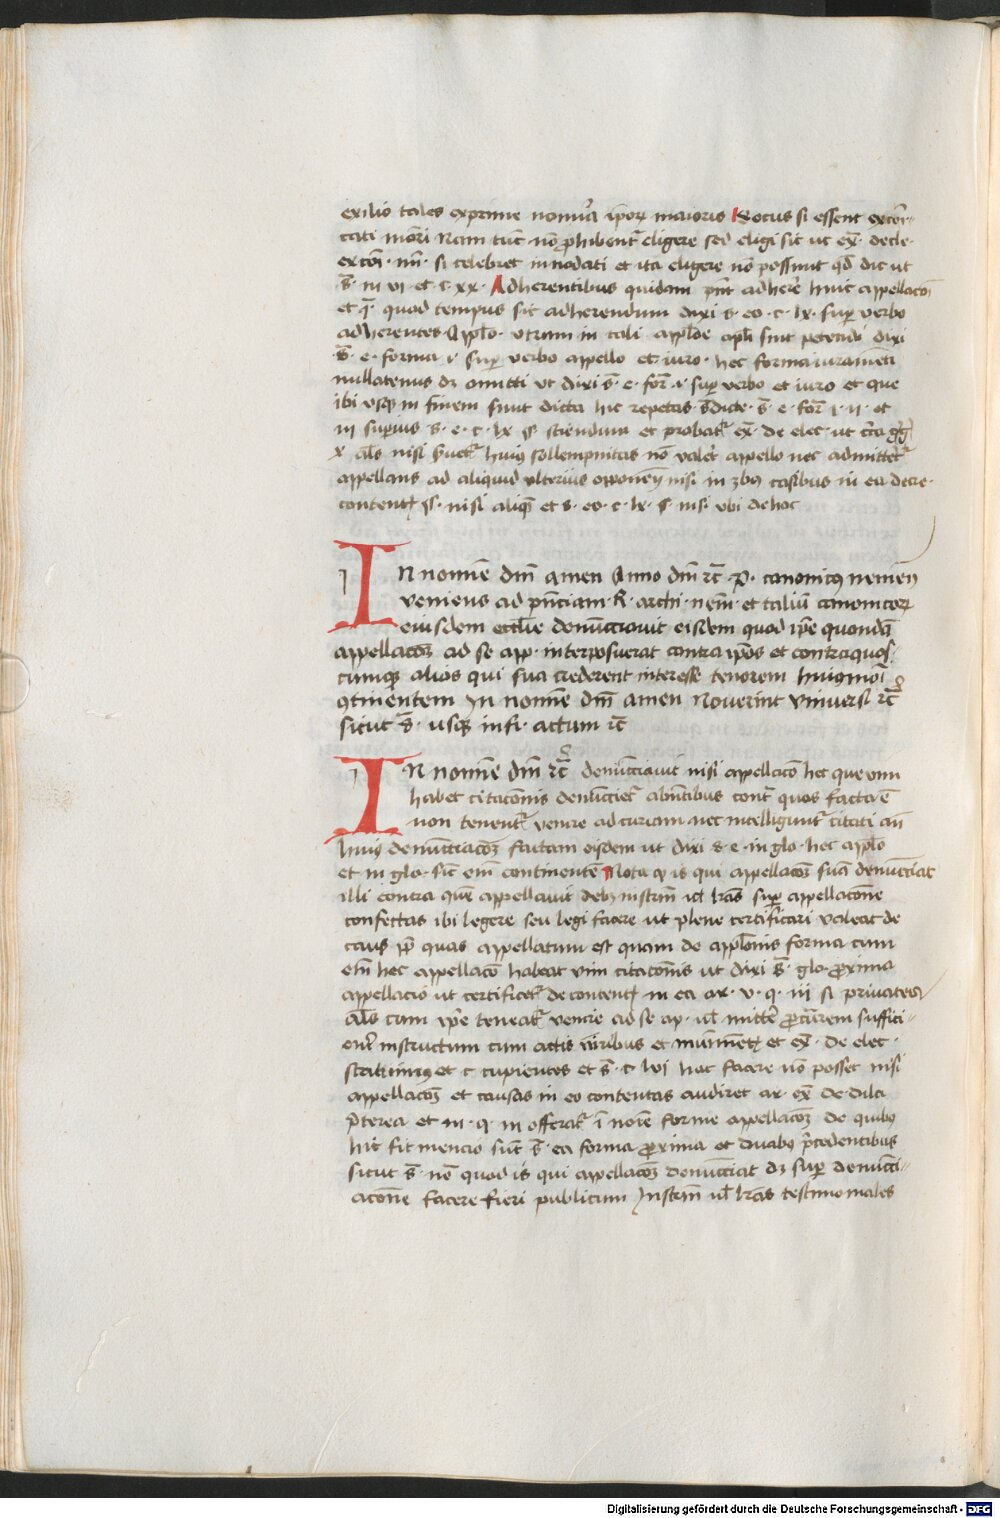 exilio tales exprime nomīa ip̄oꝝ maioris Vocus si essent excōi-
cati mōri Nam tūc nō ꝓhibent᷑ eligere sed eligi sic ut ex̄· de cle·
excōi· mī· si celebret innodati et ita eligere nō possunt qd̄ dic ut
s̄· in vi et c xx· Adherentibus quidam pn̄t adherē huic appellacōi
et q̄· quod tempus sit adherendum dixi s· eo· c· lx· suꝑ verbo
adherentes Appl̄o· vtrum in tali appl̄oe apl̄i sint petendi dixi
s̄· e· forma i· suꝑ verbo appello et iuro· hec forma iuramēti
nullatenus dꝫ omitti vt dixi s̄· e· for̄ i· suꝑ verbo et iuro et que
ibi vsqꝫ in finem sunt dicta hic repetas s̄dicte· s̄· e· for̄ i· ii· et
iii superius s· e· c· lx § sciendum et probat᷑ ex̄· de elec· ut cir̄ca
x al̄s nisi ser̄uet᷑ huiꝰ sollempnitas nō valet appello nec admittet᷑
appellans ad aliquid vlterius opponen̄ nisi in casibus in ea decre·
contentꝭ §· nisi aliqꝫ et s· eo· c· lx· §· nisi vbi de hoc
IN nomīe dn̄i amen Anno dn̄i rc̄ P· canonicꝰ nemen̄
veniens ad pn̄ciam R· archi· nem̄· et talium canonicoꝝ
eiusdem eccl̄ie denūcciavit eisdem quod ip̄e quondā
appellacōꝫ ad se ap· interposuerat contra ip̄os et contra quos-
cumqꝫ alios qui sua crederent interesse tenorem huiusmōi
ꝯtinentem In nomīe dn̄i amen Noverint vniversi rc̄
sicut s̄· usqꝫ in fi· actum rc̄
IN nomīe dn̄i rc̄ denūcciavit nisi appellacō hec que vim
habet citacōnis denūcciet᷑ absentibus cont̄ quos facta ē
non tenent᷑ venire ad curiam nec intelligunt᷑ citati an̄
huiꝰ denūcciacōꝫ factam eisdem ut dixi s· e· in glo· hec appl̄o
et in glo· sic̄ em̄ continente Nota ꝙ is qui appellacōꝫ suā denūcciat
illi contra quē appellavit debꝫ instrm̄ ul̄ lr̄as suꝑ appellacōne
confectas ibi legere seu legi facere ut plene certificari valeat de
caus ꝑ quas appellatum est quam de appl̄onis forma cum
em̄ hec appellacō habeat vim citacōnis ut dixi s̄· glo· ꝓxima
appellacio ut certificet᷑ de contentꝭ in ea ar· v· q· iii si privatera
Al̄s cum ip̄e teneat᷑ venire ad se ap· ul̄ mitter̄ ꝓcur̄em suffici-
ent̄ instructum cum actis iuribus et munimentꝭ et ex̄· de elec·
statuimꝰ et c cupientes et s̄· c lvi hoc facere nō posset nisi
appellacōꝫ et causas in eo contentas audiret ar· ex̄ de dila
p̄terea et iii· q· iii offerat᷑ ī noīe forme appellacōꝫ de quibꝰ
hic fit mencio sūt s̄· ea forma ꝓxima et duabꝰ p̄cedentibus
sicut s̄· nō quod is qui appellacōꝫ denūcciat dꝫ suꝑ denūcci-
acōne facere fieri publicum Instrm̄ ul̄ lr̄as testimoniales
Digitalisierung gefördert durch die Deutsche Forschungsgemeinschaft - DFG